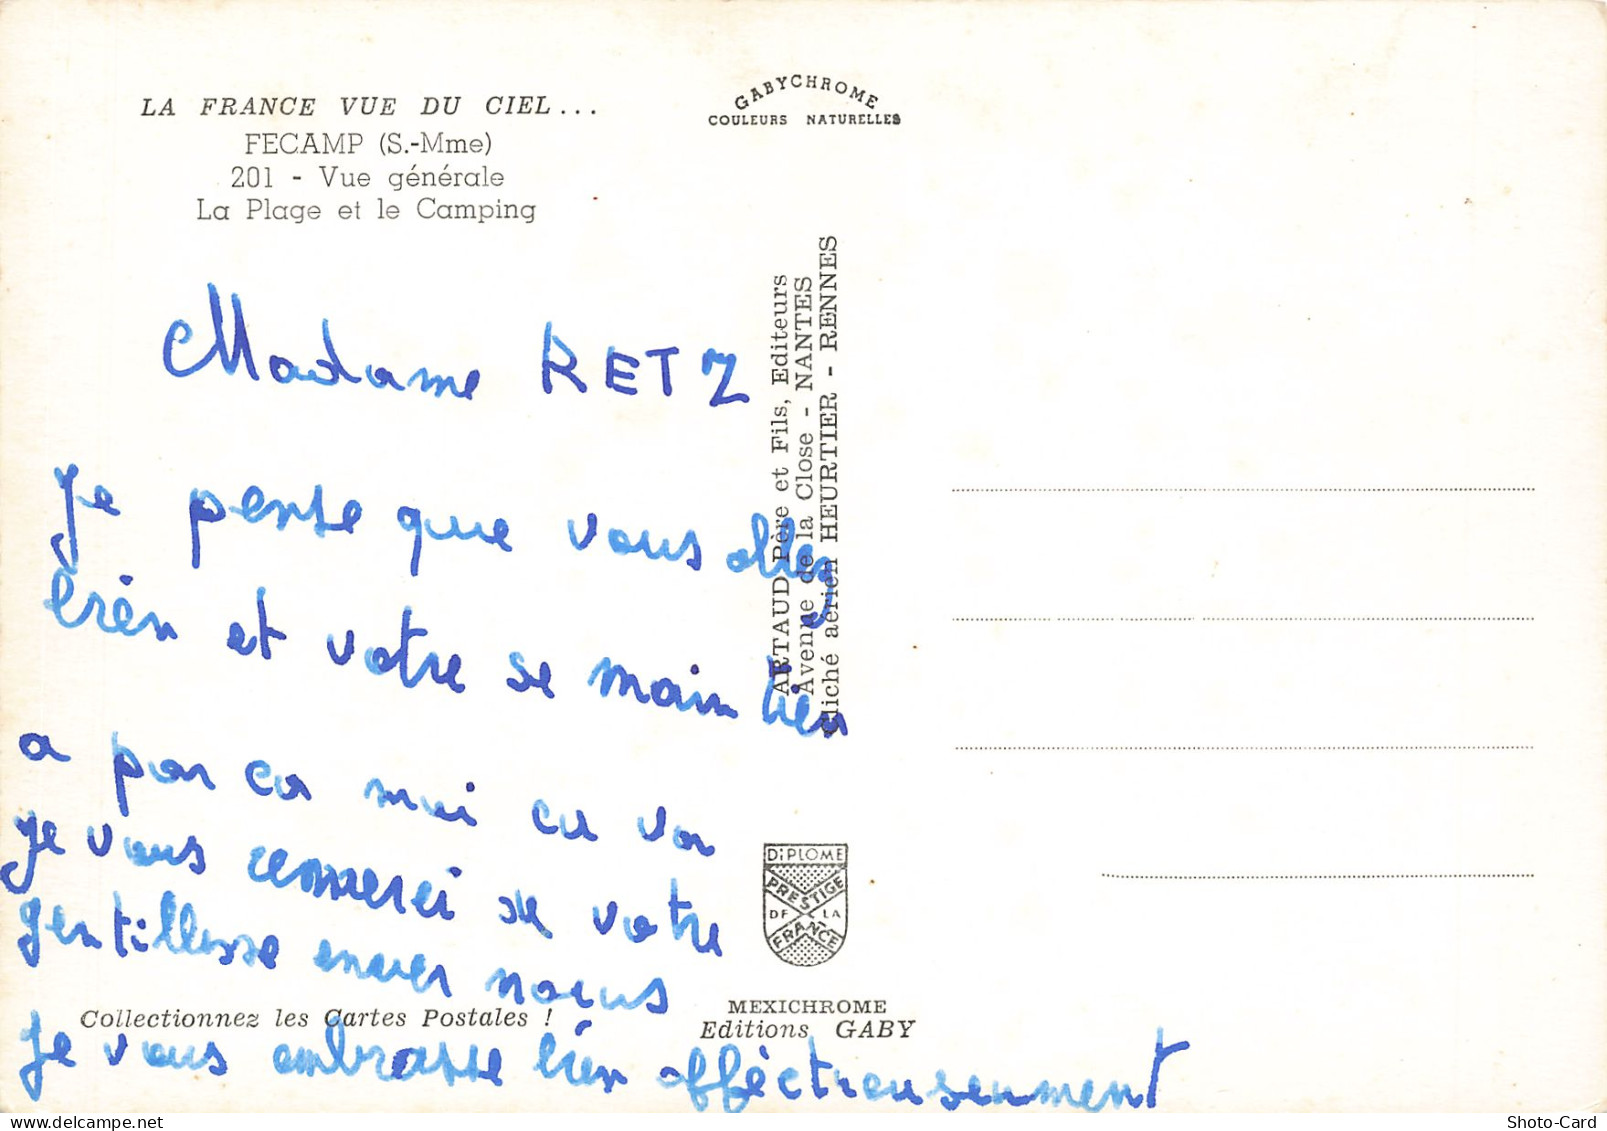 LA FRANCE VUE DU CIEL...
FECAMP (S.-Mme)
201 - Vue générale
La Plage et le Camping
GABYCHROME
COULEURS NATURELLES
Madame RETZ
Je pense que vous allez
bien et votre se maintien
a par ca moi ca va
Je vous remerci de votre
gentillesse enver nous
Je vous embrasse bien afféctueusenment
ARTAUD Père et Fils, Editeurs
Avenue de la Close - NANTES
Cliché aérien HEURTIER - RENNES
DiPLOME
PRESTIGE
DE LA
FRANCE
Collectionnez les Cartes Postales !
MEXICHROME
Editions GABY
Shoto-Card